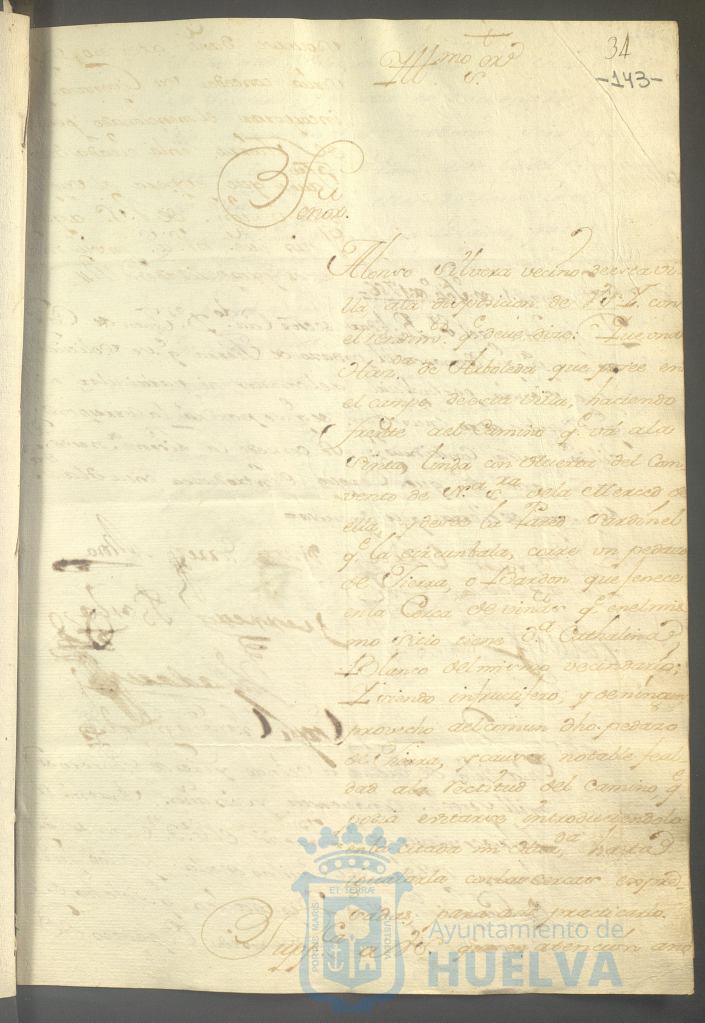 34
-143-
Ill.mo S.or
Señor.
Alonso Silvera vecino de esta vi-
lla ala disposicion de V.S.I. con
el rendim.to q.e deve dize: Que una
Haz.da de Arboleda que posee en
el campo de esta villa, haciendo
frente al Camino q.e vá a la
Cinta, linda con Huerta del Con-
vento de N.a S.ra de la Merced de
ella, y desde la Pared
q.e la circunbala, corre un pedazo
de Tierra, o Bardon que fenece
en la Cerca de viñas q.e en el mis-
mo sitio tiene D.a Cathalina
Blanco del mismo vecindario;
Y siendo infructifero, y de ningun
provecho al comun dho. pedazo
de Tierra, y causa notable feal-
dad a la rectitud del camino, q.e
podia evitarse introduciendolo
en la citada mi Haz.da, hasta
igualarla con las cercas expre-
sadas, para practicarlo.
Supp.ca a V.S. que en atencion a no
PORTUS MARIS ET TERRÆ CUSTODIA
Ayuntamiento de
HUELVA